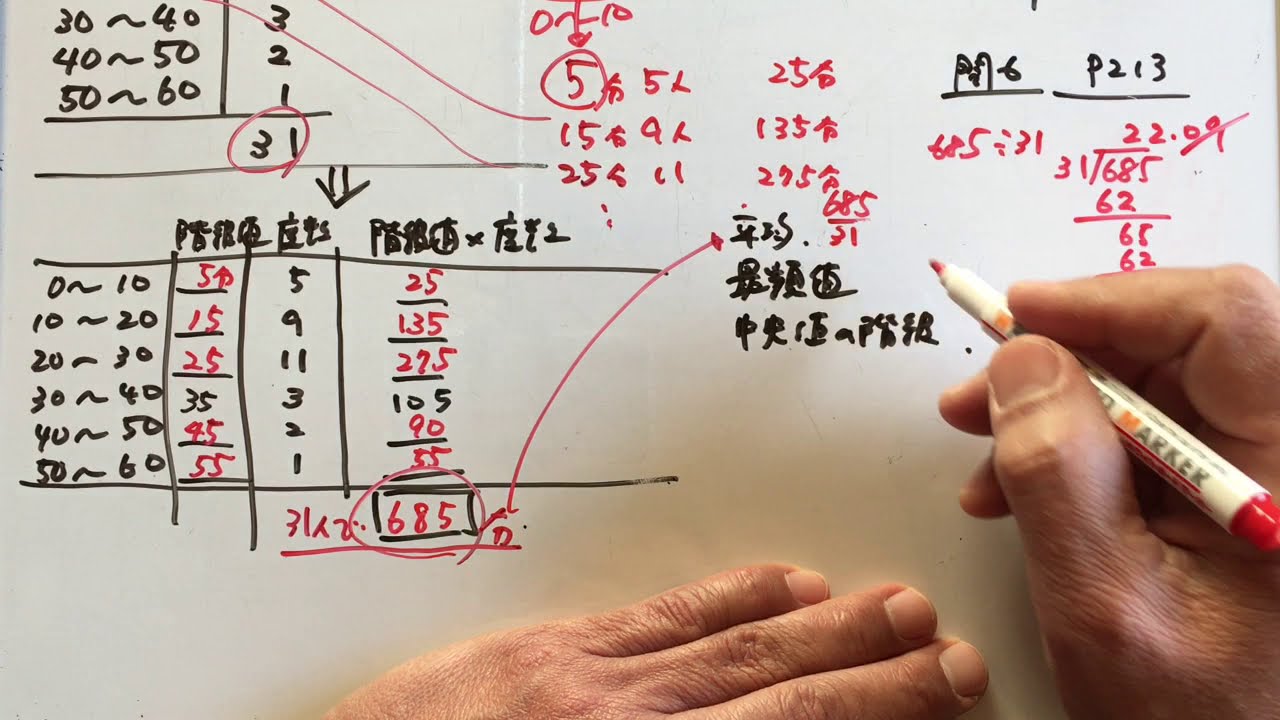 30～40 3
40～50 2
50～60 1
31
0～10
5分 5人 25分
15分 9人 135分
25分 11 275分
⋮
問6 P213
685÷31
22.09
31/685
62
65
62
平均. 685/31
最頻値
中央値の階級.
階級値 度数 階級値×度数
0～10 5分 5 25
10～20 15 9 135
20～30 25 11 275
30～40 35 3 105
40～50 45 2 90
50～60 55 1 55
31人で 685 分
MARKER